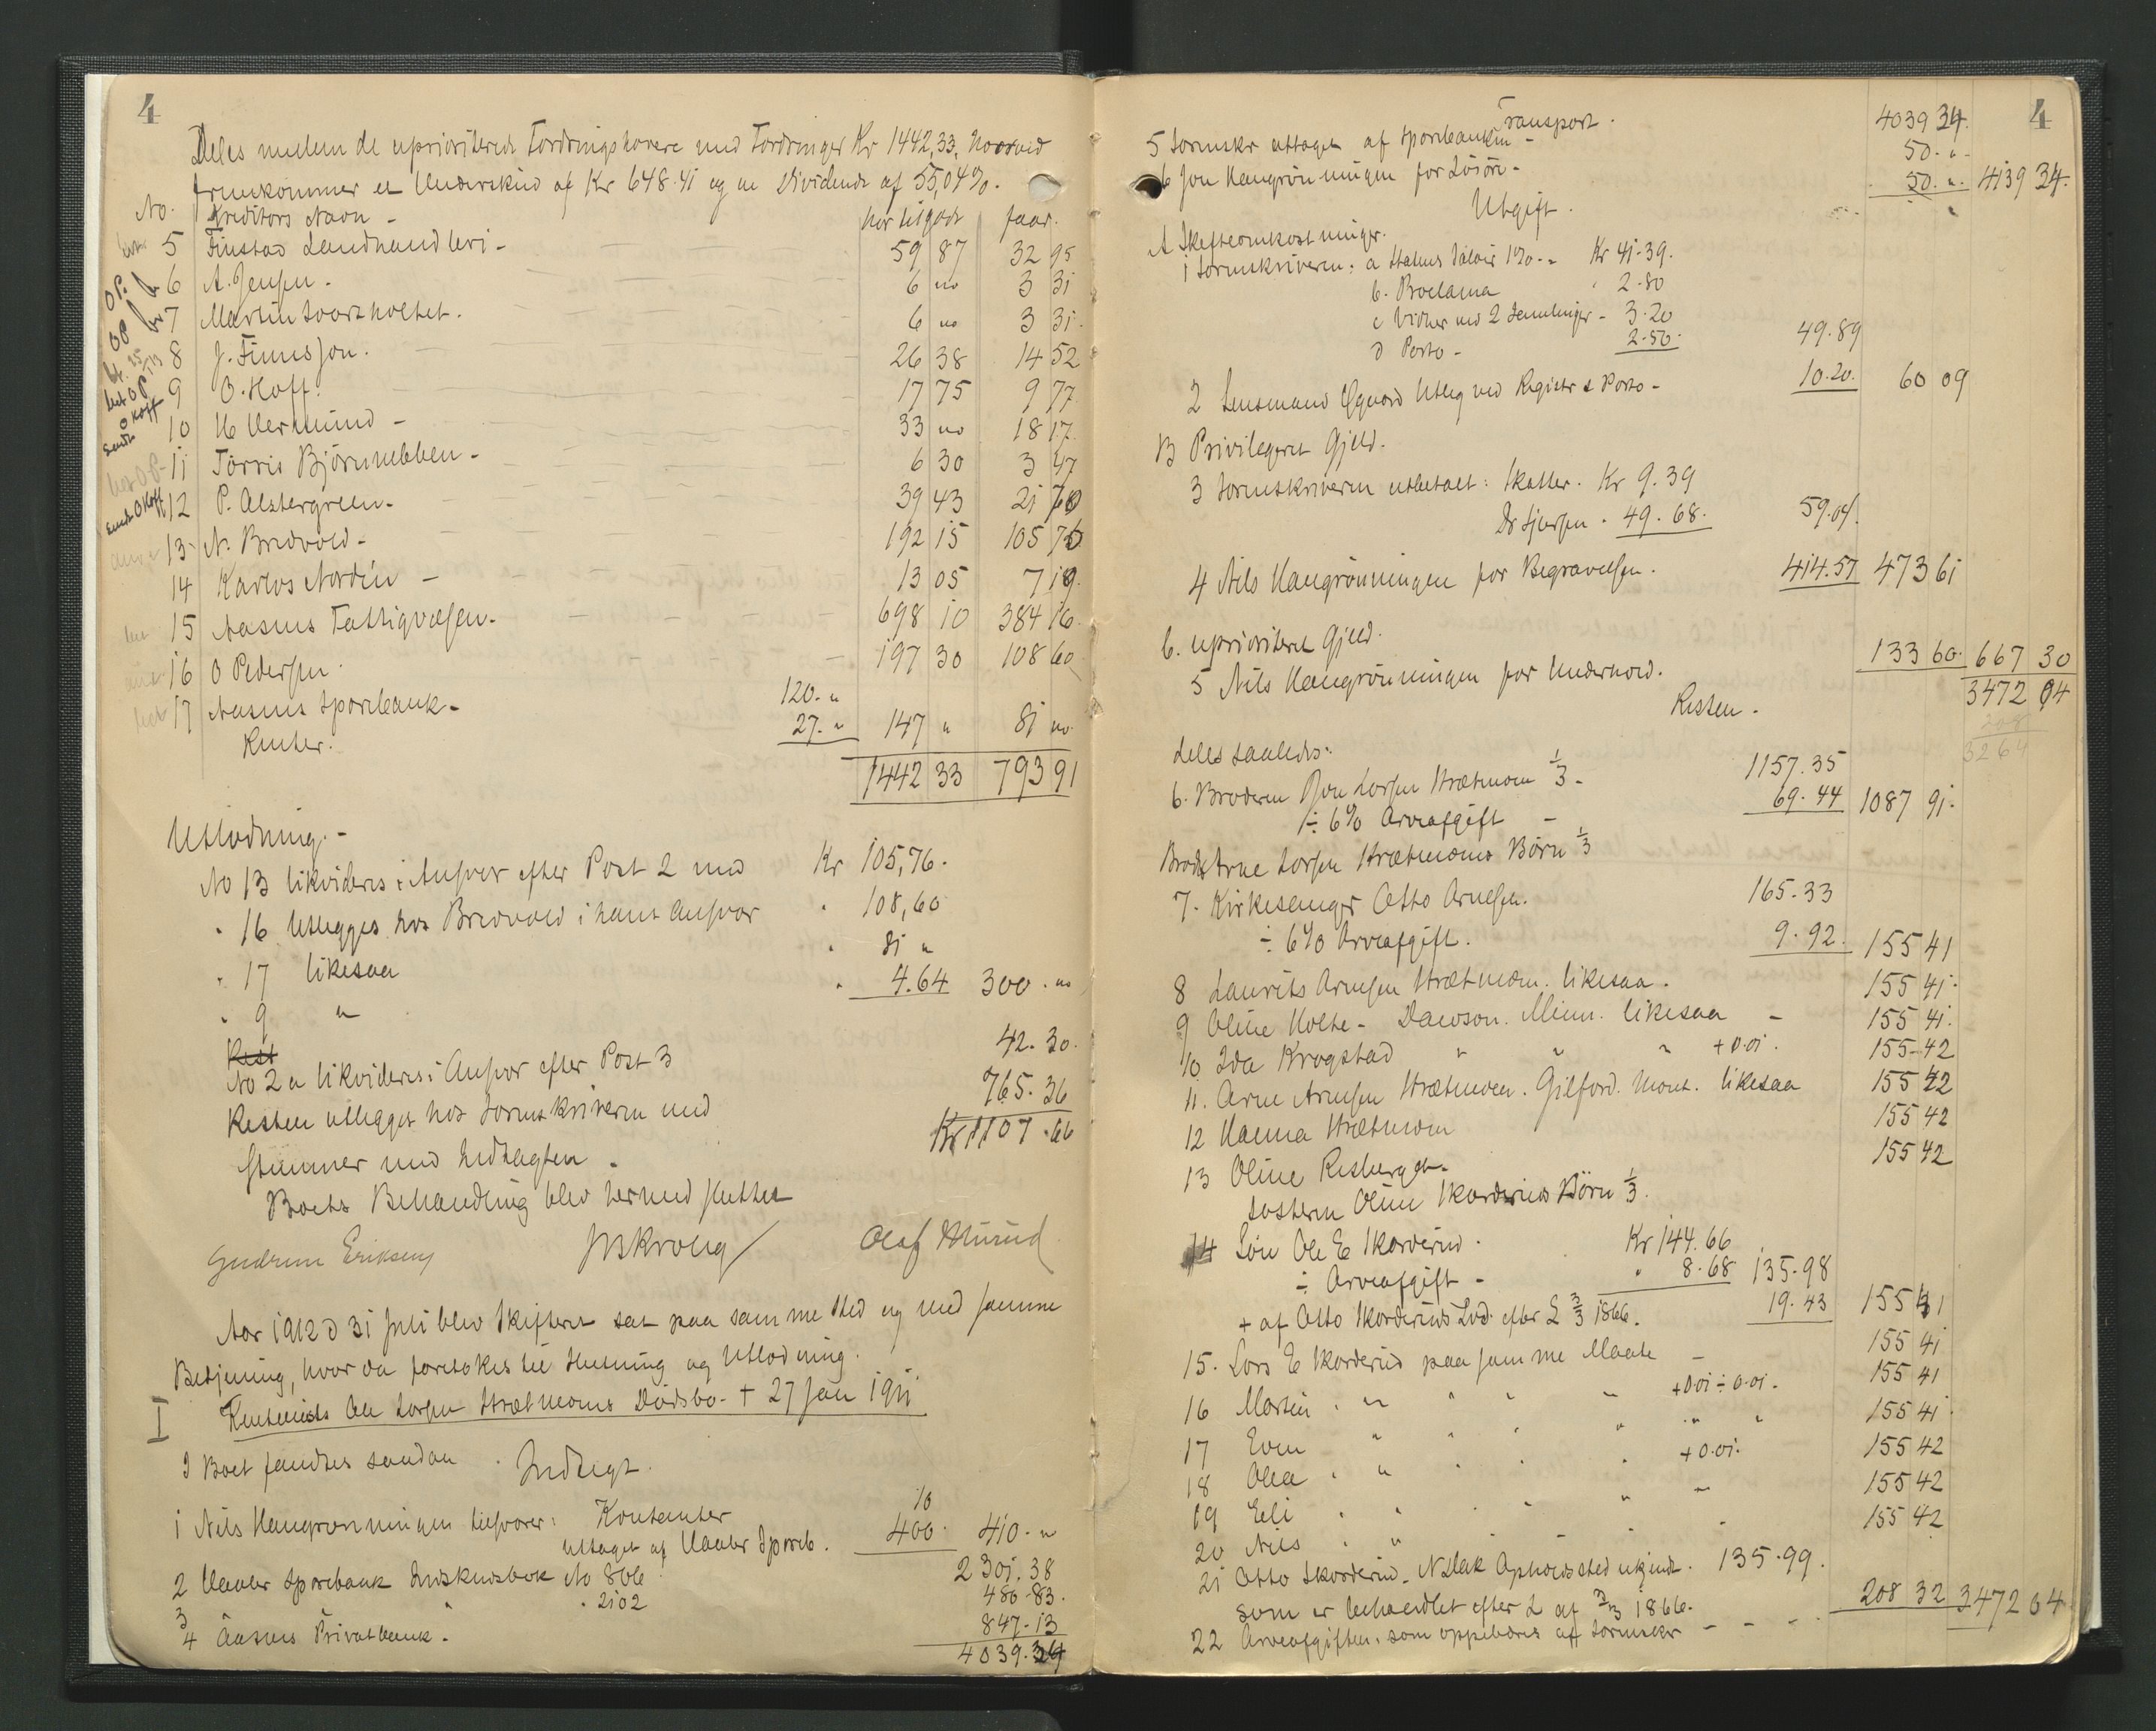 4
Deles mellem de uprioriterede Fordringshavere med Fordringer Kr 1442,33, hvorved
fremkommer et Underskud af Kr 648.41 og en Dividende af 55,04%.
No. Kreditors Navn - har tilgode faar.
5 Finstad Landhandleri - 59 87 32 95
6 A. Jensen - 6 no 3 31
7 Martin Svartholtet. 6 no 3 31.
8 J. Finnsson. 26 38 14 52
9 O. Hoff. 17 75 9 77
10 H Vermund - 33 no 18 17
11 Törris Björnnebben - 6 30 3 47
12 P. Alstergreen - 39 43 21 70
13 N. Bredvold - 192 15 105 76
14 Karlos Nordin - 13 05 7 19
15 Aasnes Fattigvæsen - 698 10 384 16
16 O Pedersen. 197 30 108 60
17 Aasnes Sparebank - 120. "
Renter. 27. " 147 " 81 no
1442 33 793 91
Utlodning. -
No 13 likvideres i Ansvar efter Post 2 med Kr 105,76.
" 16 Utlægges hos Bredvold i hans Ansvar " 108,60
" 17 likesaa " 81 "
" 9 " " 4.64 300. no
Rest
No 2 a likvideres i Ansvar efter Post 3 42.30.
Resten utlægges hos Sorenskriveren med 765.36
Stemmer med Indtægten - Kr 1107.66
Boets Behandling blev hermed sluttet
Gudrun Eriksen Olaf
Aar 1912 d 31 Juli blev Skifteret sat paa samme Sted og med samme
Betjening, hvor da foretokes til Slutning og Utlodning.
I Ole Larsen Strætmoens Dödsbo - + 27 Jan 1911
I Boet fandtes saadan Indtægt.
1 Nils Haugrønningen tilsvarer: Kontanter 10
uttaget af Vaaler Spareb. 400. 410. "
2 Vaaler Sparebank Indskudsbok No 806 2301.38
3 " " 2102 480-83.
4 Aasnes Privatbank - 847-13
4039.34
4
Transport. 4039 34.
5 Sorenskr uttaget af Sparebanken - 50. "
6 Jon Haugrønningen for Lösöre - 50. " 4139 34.
Utgift.
A Skifteomkostninger.
1 Sorenskriveren: a Halvus Salair 1%. - Kr 41-39.
b. Proclama " 2-80
c Vidner ved 2 Samlinger - 3.20
d Porto - 2-50. 49.89
2 Lensmand Ögaard Utlæg ved Registr & Porto - 10.20. 60 09
B Privilegeret Gjeld.
3 Sorenskriveren utbetalt: Skatter. Kr 9.39
Dr 49.68. 59.04.
4 Nils Haugrønningen for Begravelsen. 414.57 473 61
C. uprioriteret Gjeld.
5 Nils Haugrønningen for Underhold. 133 60. 667 30
Resten. 3472 04
208
3264
deles saaledes:
6. Broderen Jon Larsen Strætmoen 1/3 - 1157.35
÷ 6% Arveafgift - 69.44 1087 91.
Broder Arne Larsen Strætmoens Börn 1/3
7. Kirkesanger Otto Arnesen. 165.33
÷ 6% Arveafgift. 9.92. 155 41
8 Laurits Arnesen Strætmoen. likesaa. 155 41.
9 Oline Holte - Dawson. Minn. likesaa - 155 41.
10 Ida Krogstad " " " +0.01. 155-42
11. Arne Arnesen Strætmoen. Gilford. Mont. likesaa 155 42
12 Hanna Strætmoen 155 42
13 Oline Risberget. 155 42
Söstern Oline Skorderuds Börn 1/3.
14 Sön Ole E Skorderud. Kr 144.66
÷ Arveafgift - " 8.68 135.98
+ af Otto Skorderuds Lod. efter L 3/3 1866. 19.43 155 41
15. Lars E Skorderud paa samme Maate - 155 41
16 Martin " " " " " +0.01 ÷ 0.01. 155 41
17 Even " " " " " " 155 41.
18 Olea " " " " +0.01. 155 42
19 Eli " " " " " 155 42
20 Nils " " " " " 155 42
21 Otto Skorderud - N Dak Opholdssted ukjendt. 135.99.
som er behandlet efter L af 3/3 1866.
22 Arveafgiften. som oppebæres af Sorenskr - - - 208 32 3472 04.